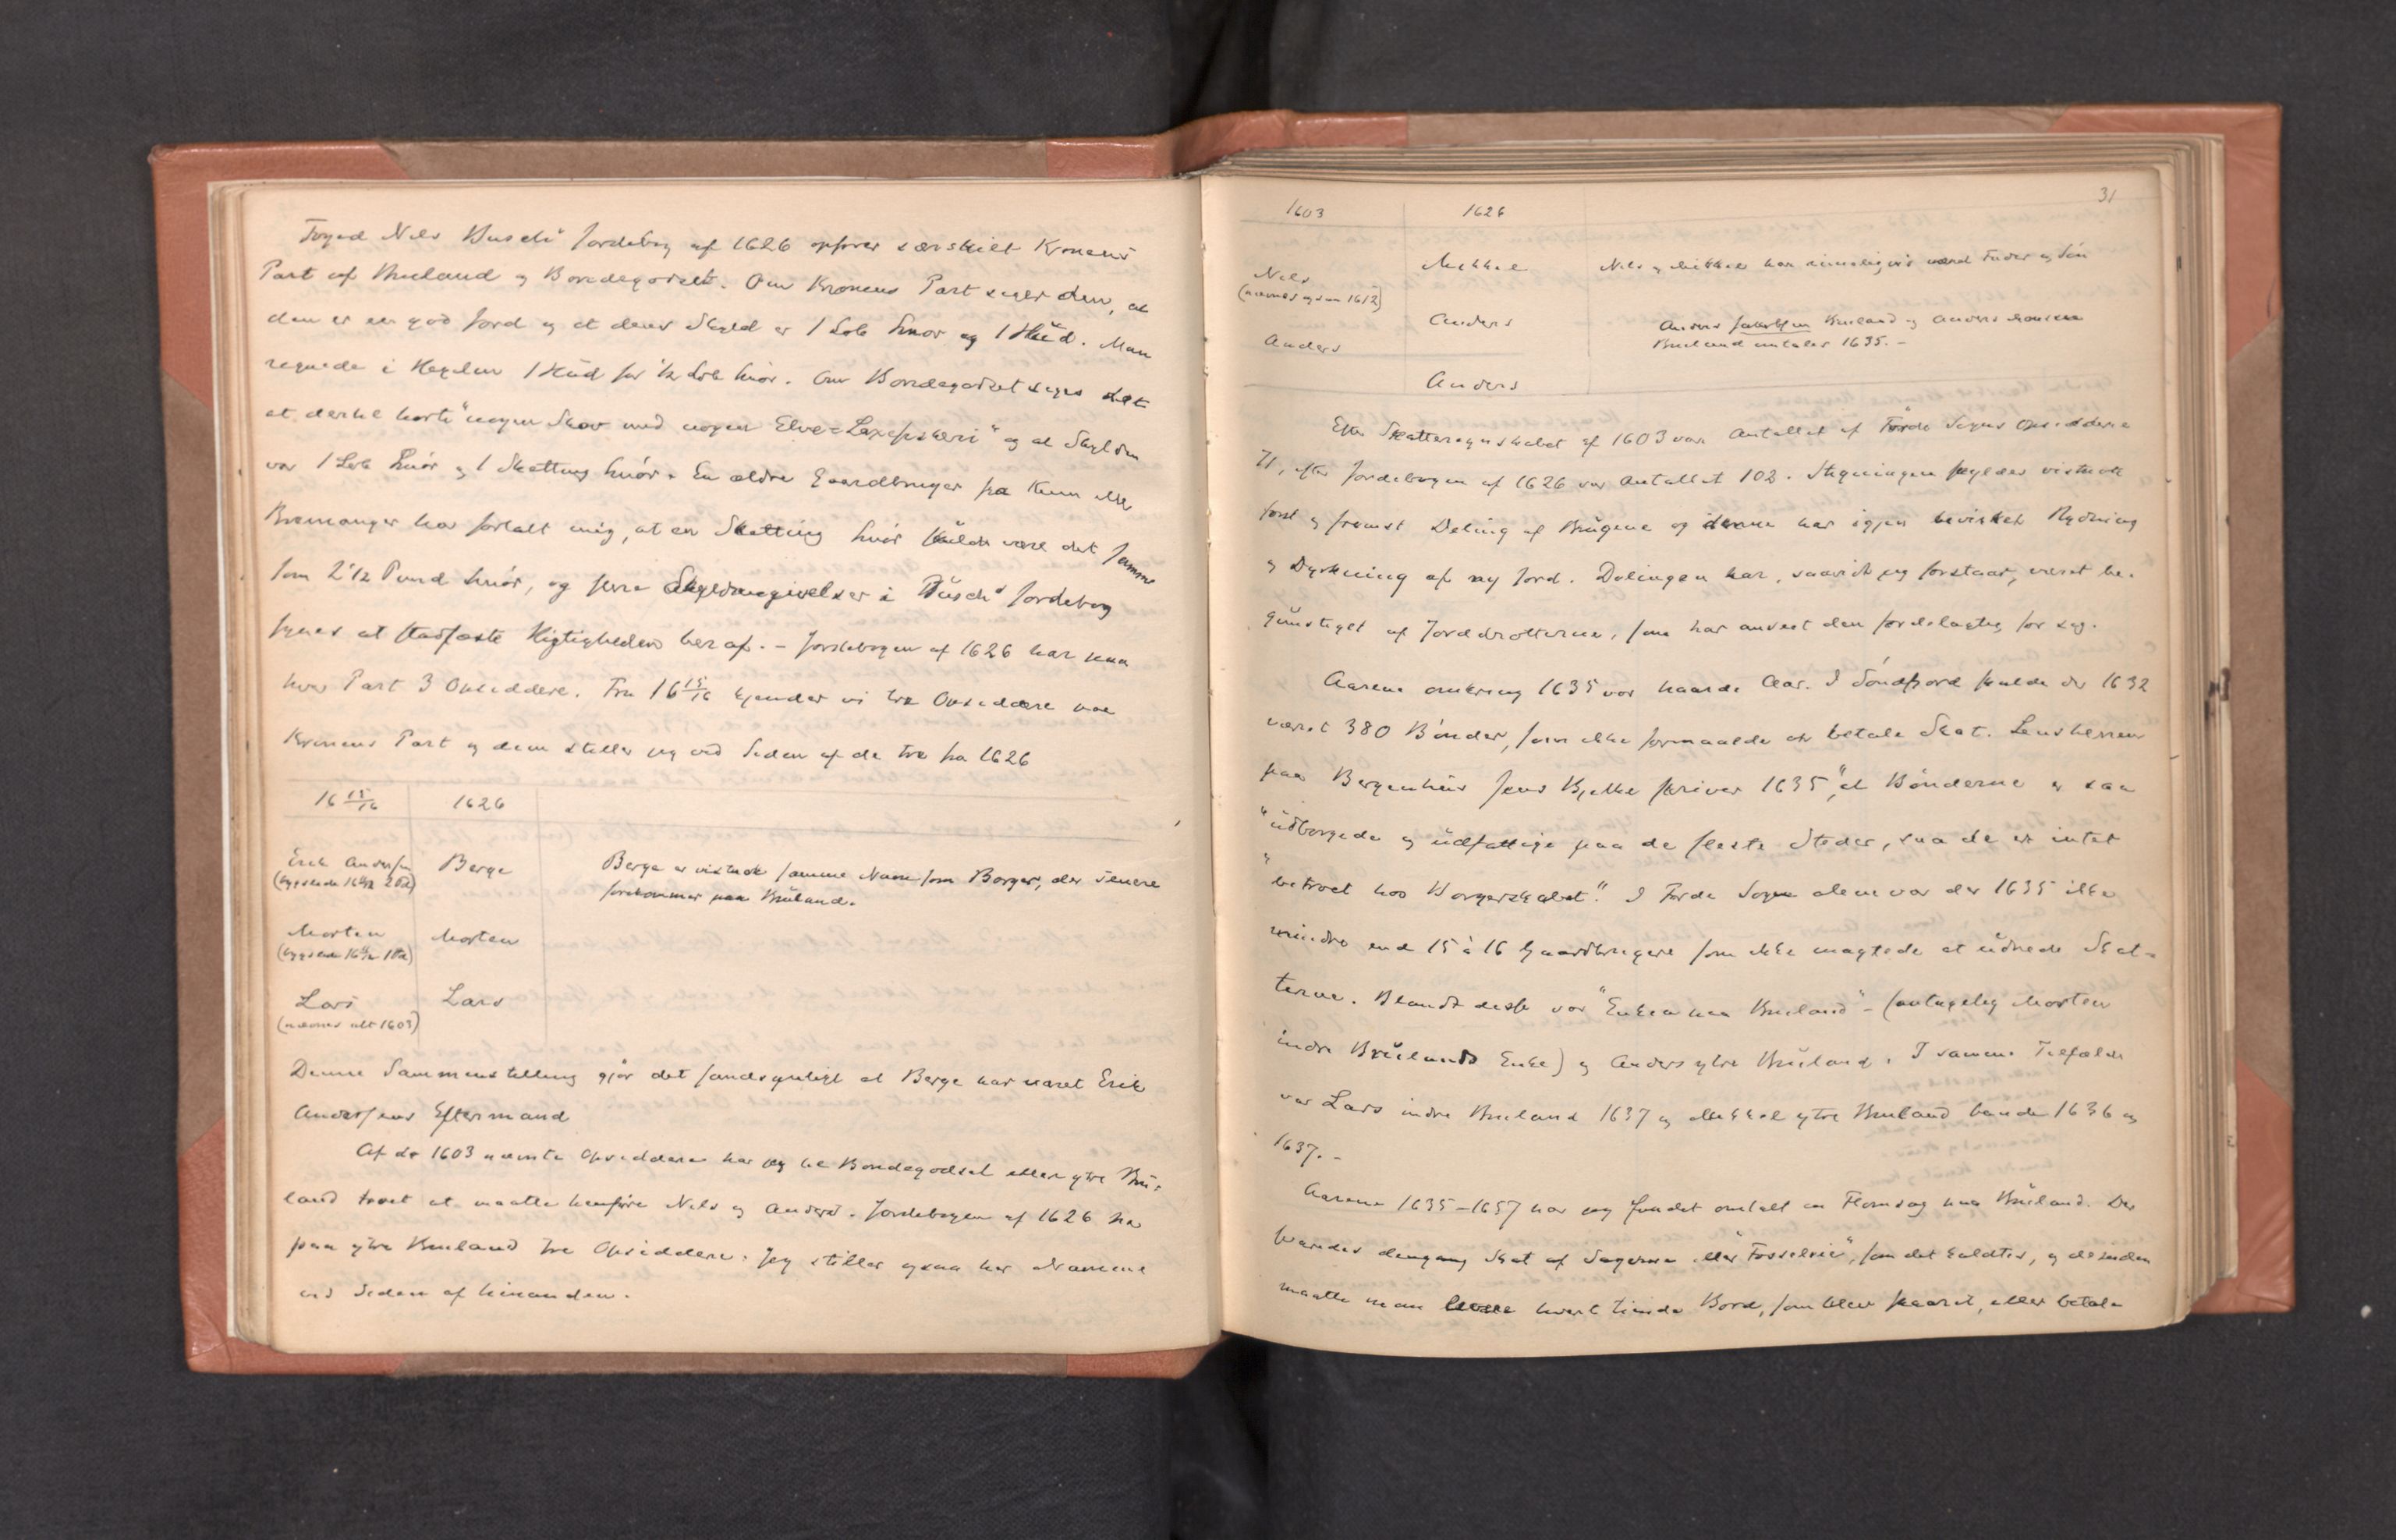 Foged Nils Busch's Jordebog af 1626 opfører særskilt Kronens
Part af Bruland og Bondegodset. Om Kronens Part siger den, at
den er en god Jord og at dens Skyld er 1 Løb Smør og 1 Hud. Man
regnede i Regelen 1 Hud for 1/2 Løb Smør. Om Bondegodset siges det
at dertil hørte "nogen Skov med nogen Elve=Laxefiskeri" og at Skylden
var 1 Løb Smør og 1 Skatting Smør. En ældre Gaardbruger fra Kinn eller
Bremanger har fortalt mig, at en Skatting Smør skulde være det samme
som 2 1/2 Pund Smør, og flere Skyldangivelser i Busch's Jordebog
synes at stadfæste Rigtigheden heraf. – Jordebogen af 1626 har paa
hver Part 3 Opsiddere. Fra 16 15/16 kjender vi tre Opsiddere paa
Kronens Part og dem stiller jeg ved Siden af de tre fra 1626
16 15/16 1626
Erik Andersen Berge Berge er vistnok samme Navn som Borger, der senere
(bygslede 2 ) forekommer paa Bruland.
Morten Morten
(bygslede 1 )
Lars Lars
(nævnes alt 1603)
Denne Sammenstilling gjør det sandsynligt at Berge har været Erik
Andersens Eftermand
Af de 1603 nævnte Opsiddere har jeg til Bondegodset eller ytre Bru-
land troet at maatte henføre Nils og Anders. Jordebogen af 1626 har
paa ytre Bruland tre Opsiddere. Jeg stiller ogsaa her Navnene
ved Siden af hinanden.
31
1603 1626
Nils Mikkel Nils og Mikkel har rimeligvis været Fader og Søn
(nævnes ogsaa 1612)
Anders Anders Anders Jakobsen Bruland og Anders Monsen
Bruland omtales 1635. –
Anders
Efter Skatteregnskabet af 1603 var Antallet af Førde Sogns Opsiddere
71, efter Jordebogen af 1626 var Antallet 102. Stigningen skyldes vistnok
først og fremst Deling af Brugene og denne har igjen bevirket Rydning
og Dyrkning af ny Jord. Delingen har, saavidt jeg forstaar, været be-
gunstiget af Jorddrotterne, som har anseet den fordelagtig for sig.
Aarene omkring 1635 var haarde Aar. I Søndfjord skulde der 1632
været 380 Bønder, som ikke formaaede at betale Skat. Lensherren
paa Bergenhus Jens Bjelke skriver 1635, "at Bønderne er saa
"udborgede og udfattige paa de fleste Steder, saa de er intet
"betroet hos Borgerskabet". I Førde Sogn alene var der 1635 ikke
mindre end 15 à 16 Gaardbrugere som ikke magtede at udrede Skat-
terne. Blandt disse var "Enken paa Bruland" – (antagelig Morten
indre Brulands Enke) og Anders ytre Bruland. I samme Tilfælde
var Lars indre Bruland 1637 og Mikkel ytre Bruland baade 1636 og
1637. –
Aarene 1635–1657 har jeg fundet omtalt en Flomsag paa Bruland. Der
svaredes dengang Skat af Sagerne eller , som det kaldtes, og desuden
maatte man levere hvert tiende Bord, som blev skaaret, eller betale